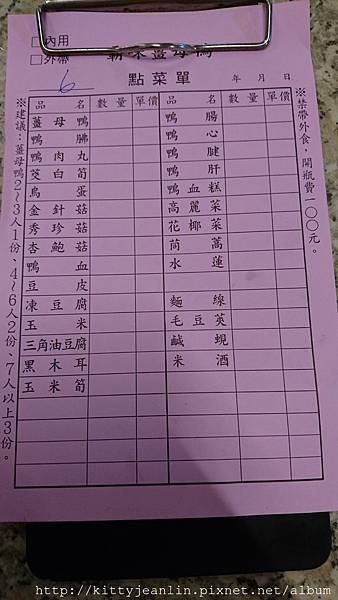 □內用
□外帶
薑母鴨
6
點菜單
年 月 日
品名 數量 單價 品名 數量 單價
薑母鴨 鴨腸
鴨胇 鴨心
鴨肉丸 鴨腱
茭白筍 鴨肝
鳥蛋 鴨血糕
金針菇 高麗菜
秀珍菇 花椰菜
杏鮑菇 茼蒿
鴨血 水蓮
豆皮
凍豆腐 麵線
玉米 毛豆莢
三角油豆腐 鹹蜆
黑木耳 米酒
玉米筍
※建議：薑母鴨2～3人1份、4～6人2份、7人以上3份。
※禁帶外食，開瓶費一○○元。
http://kittyjeanlin.pixnet.net/album